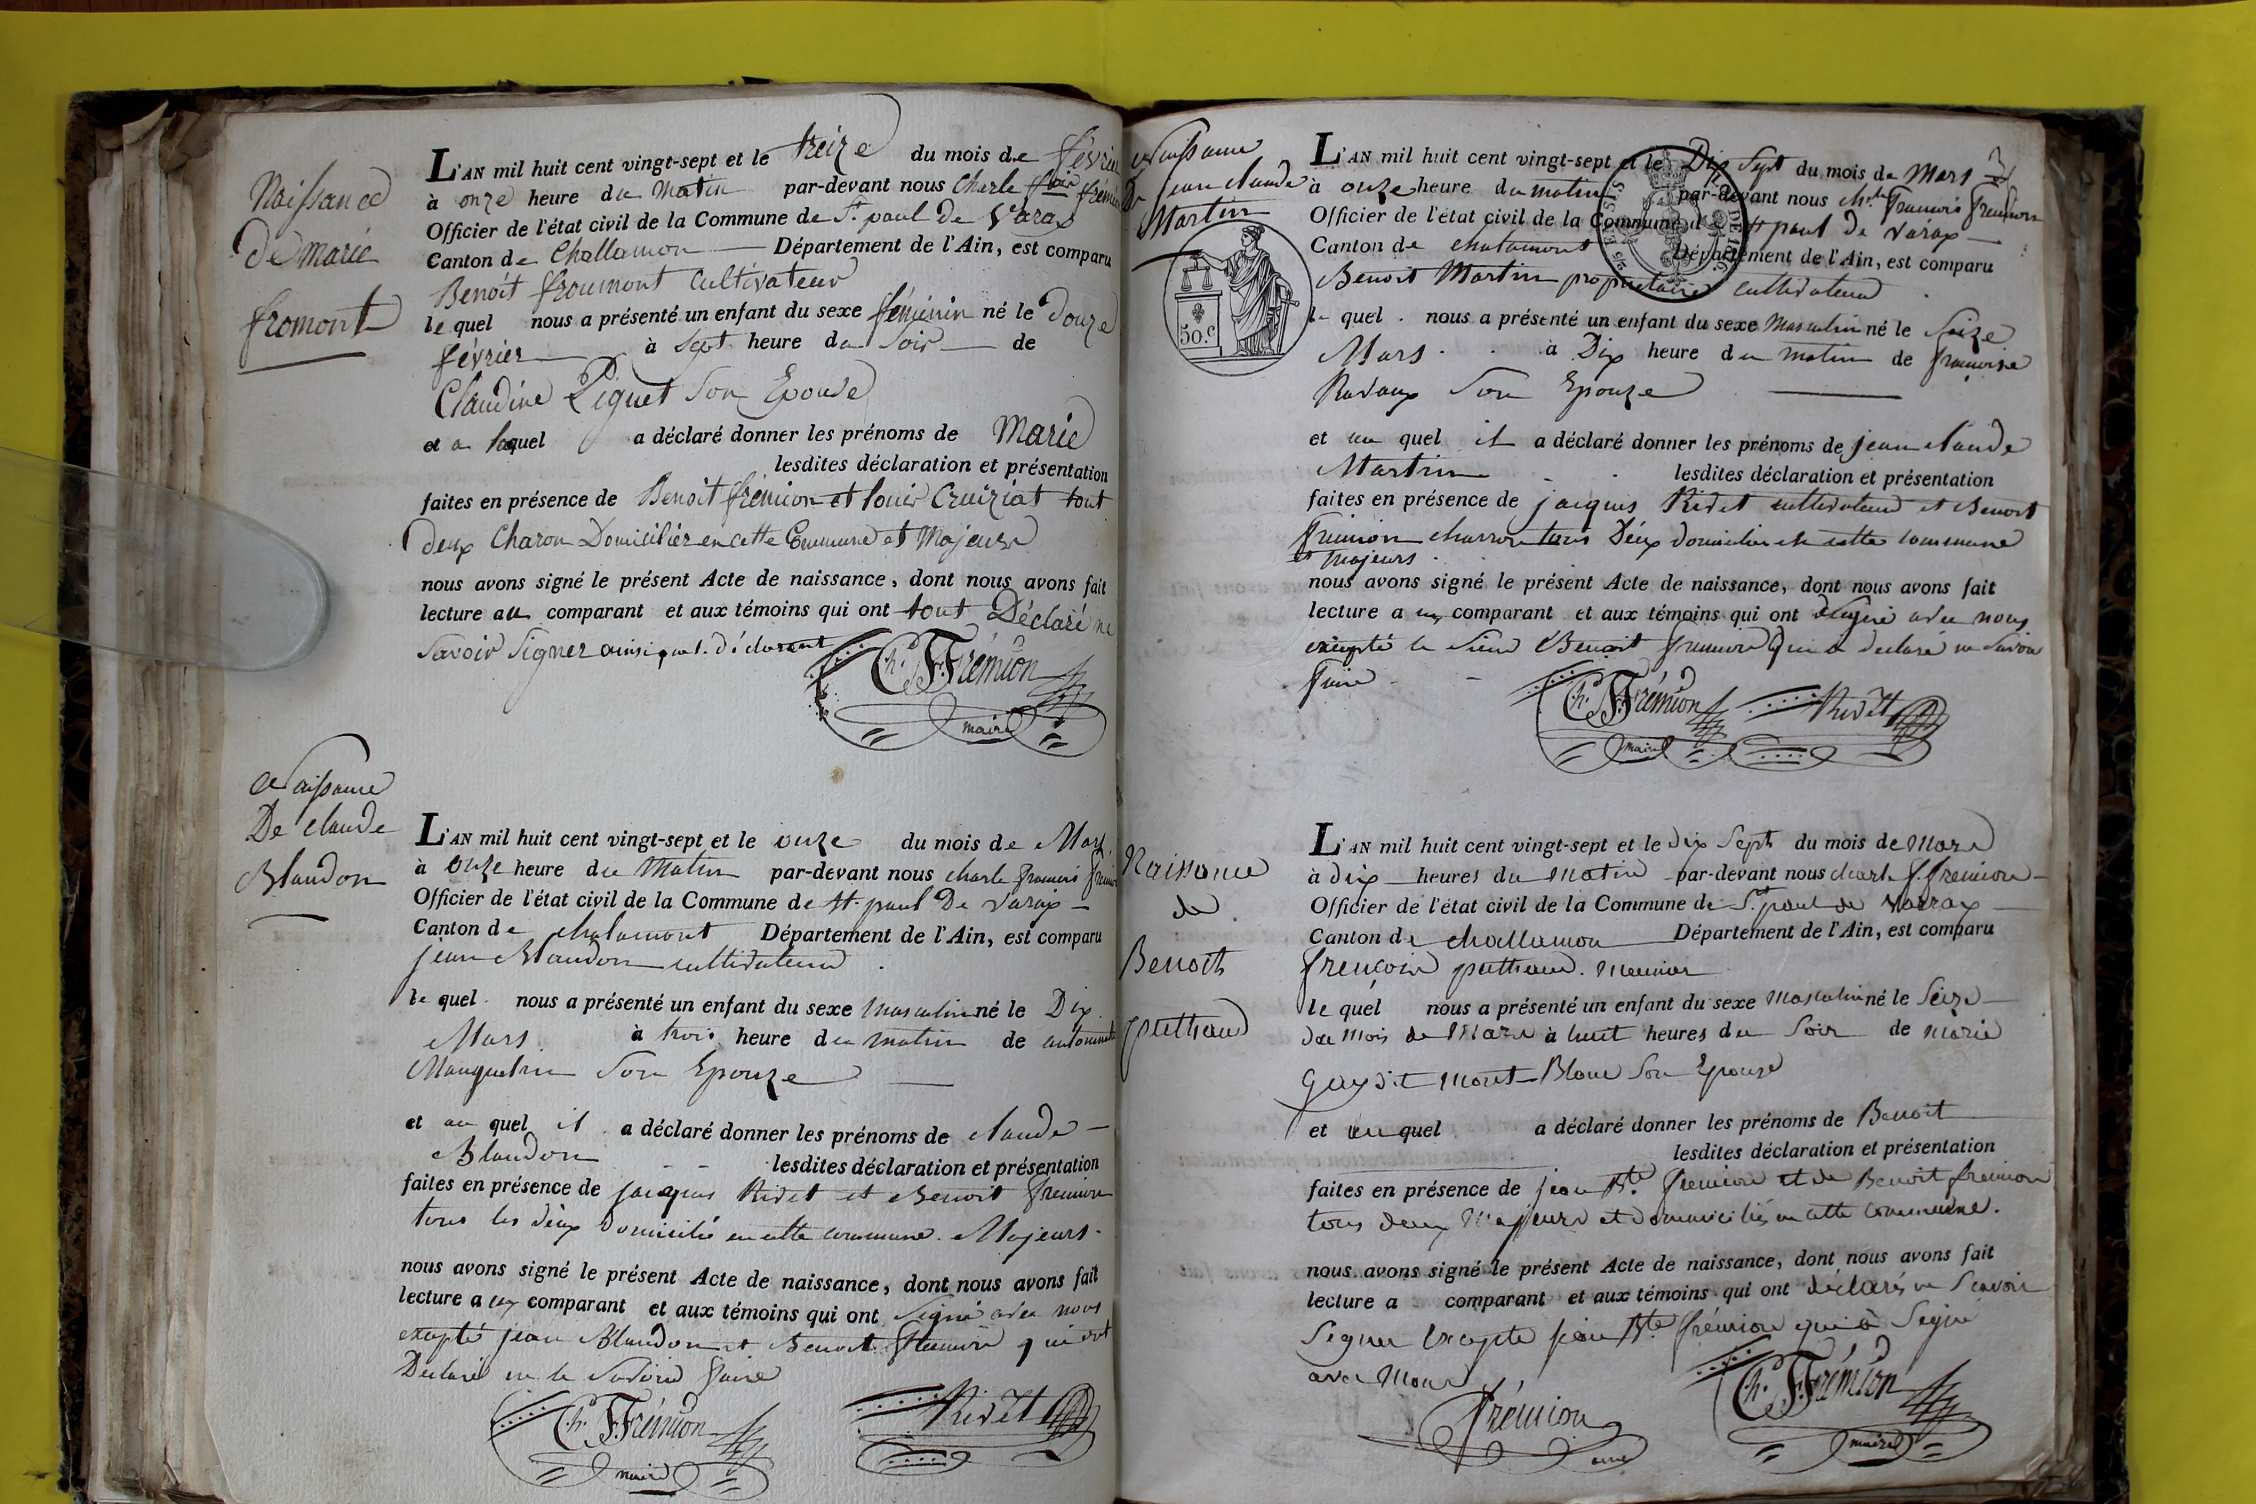 Naissance
de marie
fromont
L'AN mil huit cent vingt-sept et le treize du mois de février
à onze heure du Matin par-devant nous Charle frémion
Officier de l'état civil de la Commune de St. paul de Varax
Canton de Challamon Département de l'Ain, est comparu
Benoit froumont Cultivateur
le quel nous a présenté un enfant du sexe féminin né le Douze
février à Sept heure du Soir de
Claudine Piguet Son Epouse
et a laquel a déclaré donner les prénoms de Marie
lesdites déclaration et présentation
faites en présence de Benoit frémion et louis Cruiziat tout
deux Charon Domiciliér en cette Commune et Majeurs
nous avons signé le présent Acte de naissance, dont nous avons fait
lecture au comparant et aux témoins qui ont tout Déclaré ne
Savoir Signer ainsi que l. déclarant
Ch. F. Frémion
maire
Naissance
De claude
Blandon
L'AN mil huit cent vingt-sept et le onze du mois de Mars
à onze heure du Matin par-devant nous charle francois fremion
Officier de l'état civil de la Commune de St. paul De varax
Canton de chalamont Département de l'Ain, est comparu
jean Blandon cultivateur
le quel nous a présenté un enfant du sexe masculin né le Dix
Mars à trois heure du matin de
Manguelin Son Epouze
et au quel il a déclaré donner les prénoms de claude
Blandon lesdites déclaration et présentation
faites en présence de jacques Ridet et Benoit fremion
tous les deux domicilié en cette commune. Majeurs.
nous avons signé le présent Acte de naissance, dont nous avons fait
lecture a comparant et aux témoins qui ont Signé avec nous
excepté jean Blandon et Benoit fremion qui ont
Déclaré ne le Savoir faire
Ch. F. Frémion
maire
Ridet
Naissance
De jean claude
Martin
50.c
L'AN mil huit cent vingt-sept et le Dix Sept du mois de Mars
à onze heure du matin par-devant nous ch.le francois fremion
Officier de l'état civil de la Commune d St paul de varax
Canton de chalamont Département de l'Ain, est comparu
Benoit Martin propriétaire cultivateur
le quel nous a présenté un enfant du sexe Masculin né le Seize
Mars à Dix heure du matin de francoise
Ravaux Son Epouze
et au quel il a déclaré donner les prénoms de jean claude
Martin lesdites déclaration et présentation
faites en présence de jacques Ridet cultivateur et Benoit
fremion charron tous Deux domicilier en cette commune
et majeurs
nous avons signé le présent Acte de naissance, dont nous avons fait
lecture a comparant et aux témoins qui ont signé avec nous
excepté le Sieur Benoit fremion Qui a declaré ne Savoir
faire
Ch. F. Frémion
maire
Ridet
Naissance
de
Benoit
puthaud
L'AN mil huit cent vingt-sept et le dix Sept du mois de Mars
à dix heures du matin par-devant nous charle f. fremion
Officier de l'état civil de la Commune de St. paul de varax
Canton de challamon Département de l'Ain, est comparu
françois puthaud. Meunier
le quel nous a présenté un enfant du sexe Masculin né le Seize
du mois de Mars à huit heures du Soir de marie
Gay dit Mont-Blanc Son Epouse
et au quel a déclaré donner les prénoms de Benoit
lesdites déclaration et présentation
faites en présence de jean Bte. fremion et de Benoit fremion
tous deux Majeurs et domiciliés en cette commune.
nous avons signé le présent Acte de naissance, dont nous avons fait
lecture a comparant et aux témoins qui ont déclarés ne Scavoir
Signer Excepté jean Bte. frémion qui à Signé
avec Nous
frémion
Ch. F. Frémion
maire